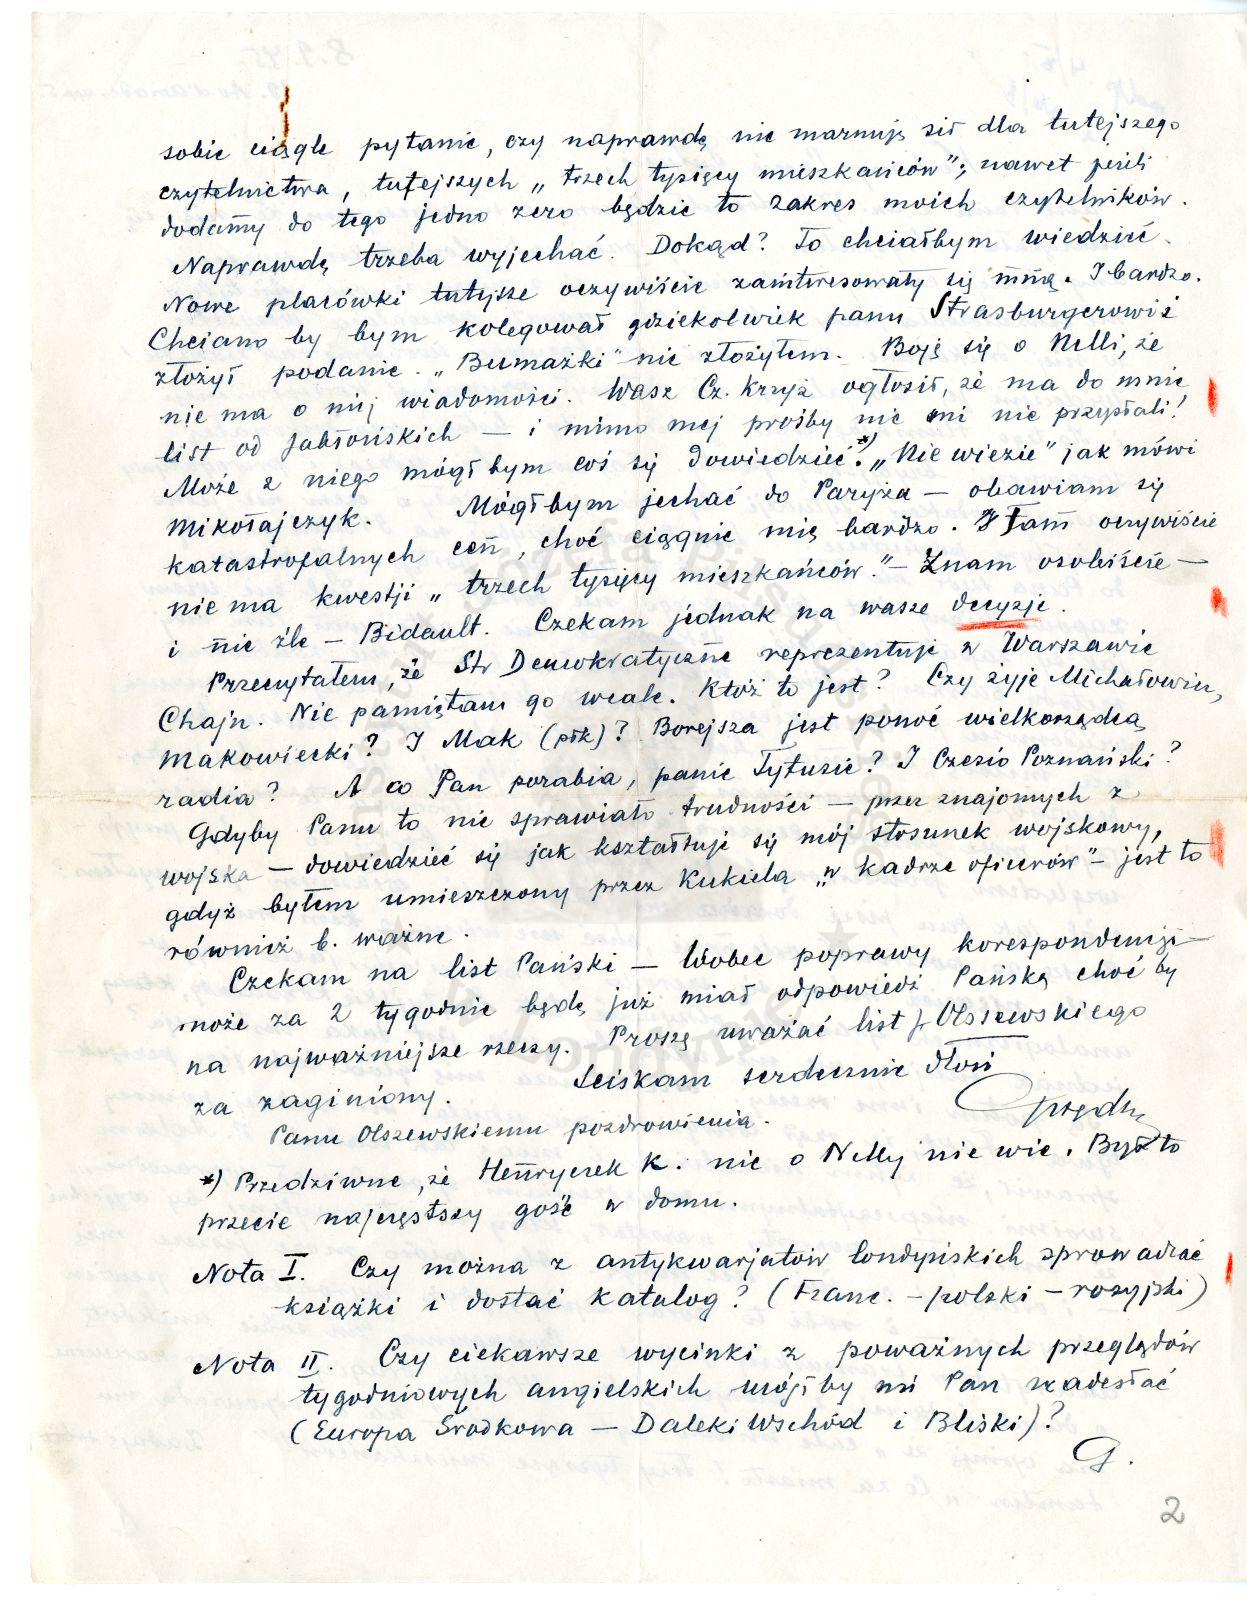 sobie ciągle pytanie, czy naprawdę nie marnuję sił dla tutejszego
czytelnictwa, tutejszych „trzech tysięcy mieszkańców”; nawet jeśli
dodamy do tego jedno zero będzie to zakres moich czytelników.
Naprawdę trzeba wyjechać. Dokąd? To chciałbym wiedzieć.
Nowe placówki tutejsze oczywiście zainteresowały się mną. I bardzo.
Chciano by bym kolegował gdziekolwiek panu Strasburgerowi i
złożył podanie. „Bumażki” nie złożyłem. Boję się o Nelli, że
nie ma o niej wiadomości. Wasz Cz. Krzyż ogłosił, że ma do mnie
list od Jabłońskich — i mimo mej prośby nic mi nie przysłali!
Może z niego mógłbym coś się dowiedzieć.*) „Nie wiezie” jak mówi
Mikołajczyk. Mógłbym jechać do Paryża — obawiam się
katastrofalnych cen, choć ciągnie mię bardzo. Tam oczywiście
nie ma kwestji „trzech tysięcy mieszkańców.” — Znam osobiście —
i nie źle — Bidault. Czekam jednak na wasze decyzje.
Przeczytałem, że Str Demokratyczne reprezentuje w Warszawie
Chajn. Nie pamiętam go wcale. Któż to jest? Czy żyje Michałowicz,
Makowiecki? I Mak (płk)? Borejsza jest ponoć wielkorządcą
radia? A co Pan porabia, panie Tytusie? I Czesio Poznański?
Gdyby Panu to nie sprawiało trudności — przez znajomych z
wojska — dowiedzieć się jak kształtuje się mój stosunek wojskowy,
gdyż byłem umieszczony przez Kukiela „w kadrze oficerów” — jest to
również b. ważne.
Czekam na list Pański — Wobec poprawy korespondencji —
może za 2 tygodnie będę już miał odpowiedź Pańską choć by
na najważniejsze rzeczy. Proszę uważać list p. Olszewskiego
za zaginiony. Ściskam serdecznie dłoń
Panu Olszewskiemu pozdrowienia.
*) Przedziwne, że Henryczek K. nic o Nelly nie wie. Był to
przecie najczęstszy gość w domu.
Nota I. Czy można z antykwarjatów londyńskich sprowadzać
książki i dostać katalog? (Franc. — polski — rosyjski)
Nota II. Czy ciekawsze wycinki z poważnych przeglądów
tygodniowych angielskich mógłby mi Pan nadesłać
(Europa Środkowa — Daleki Wschód i Bliski)?
G.
2